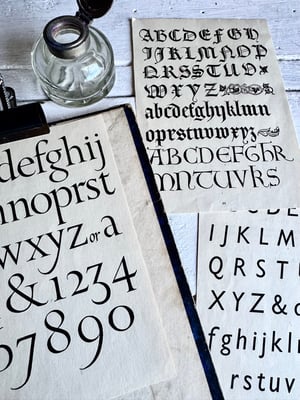 ABCDEFGH
IJKLMNOP
QRSTU
WXYZ
abcdefghijklmn
opqrstuvwxyz
ABCDEFGH
defghij
noprst
wxyz or a
&1234
7890
IJKLM
QRSTU
XYZ&
fghijkl
rstuv